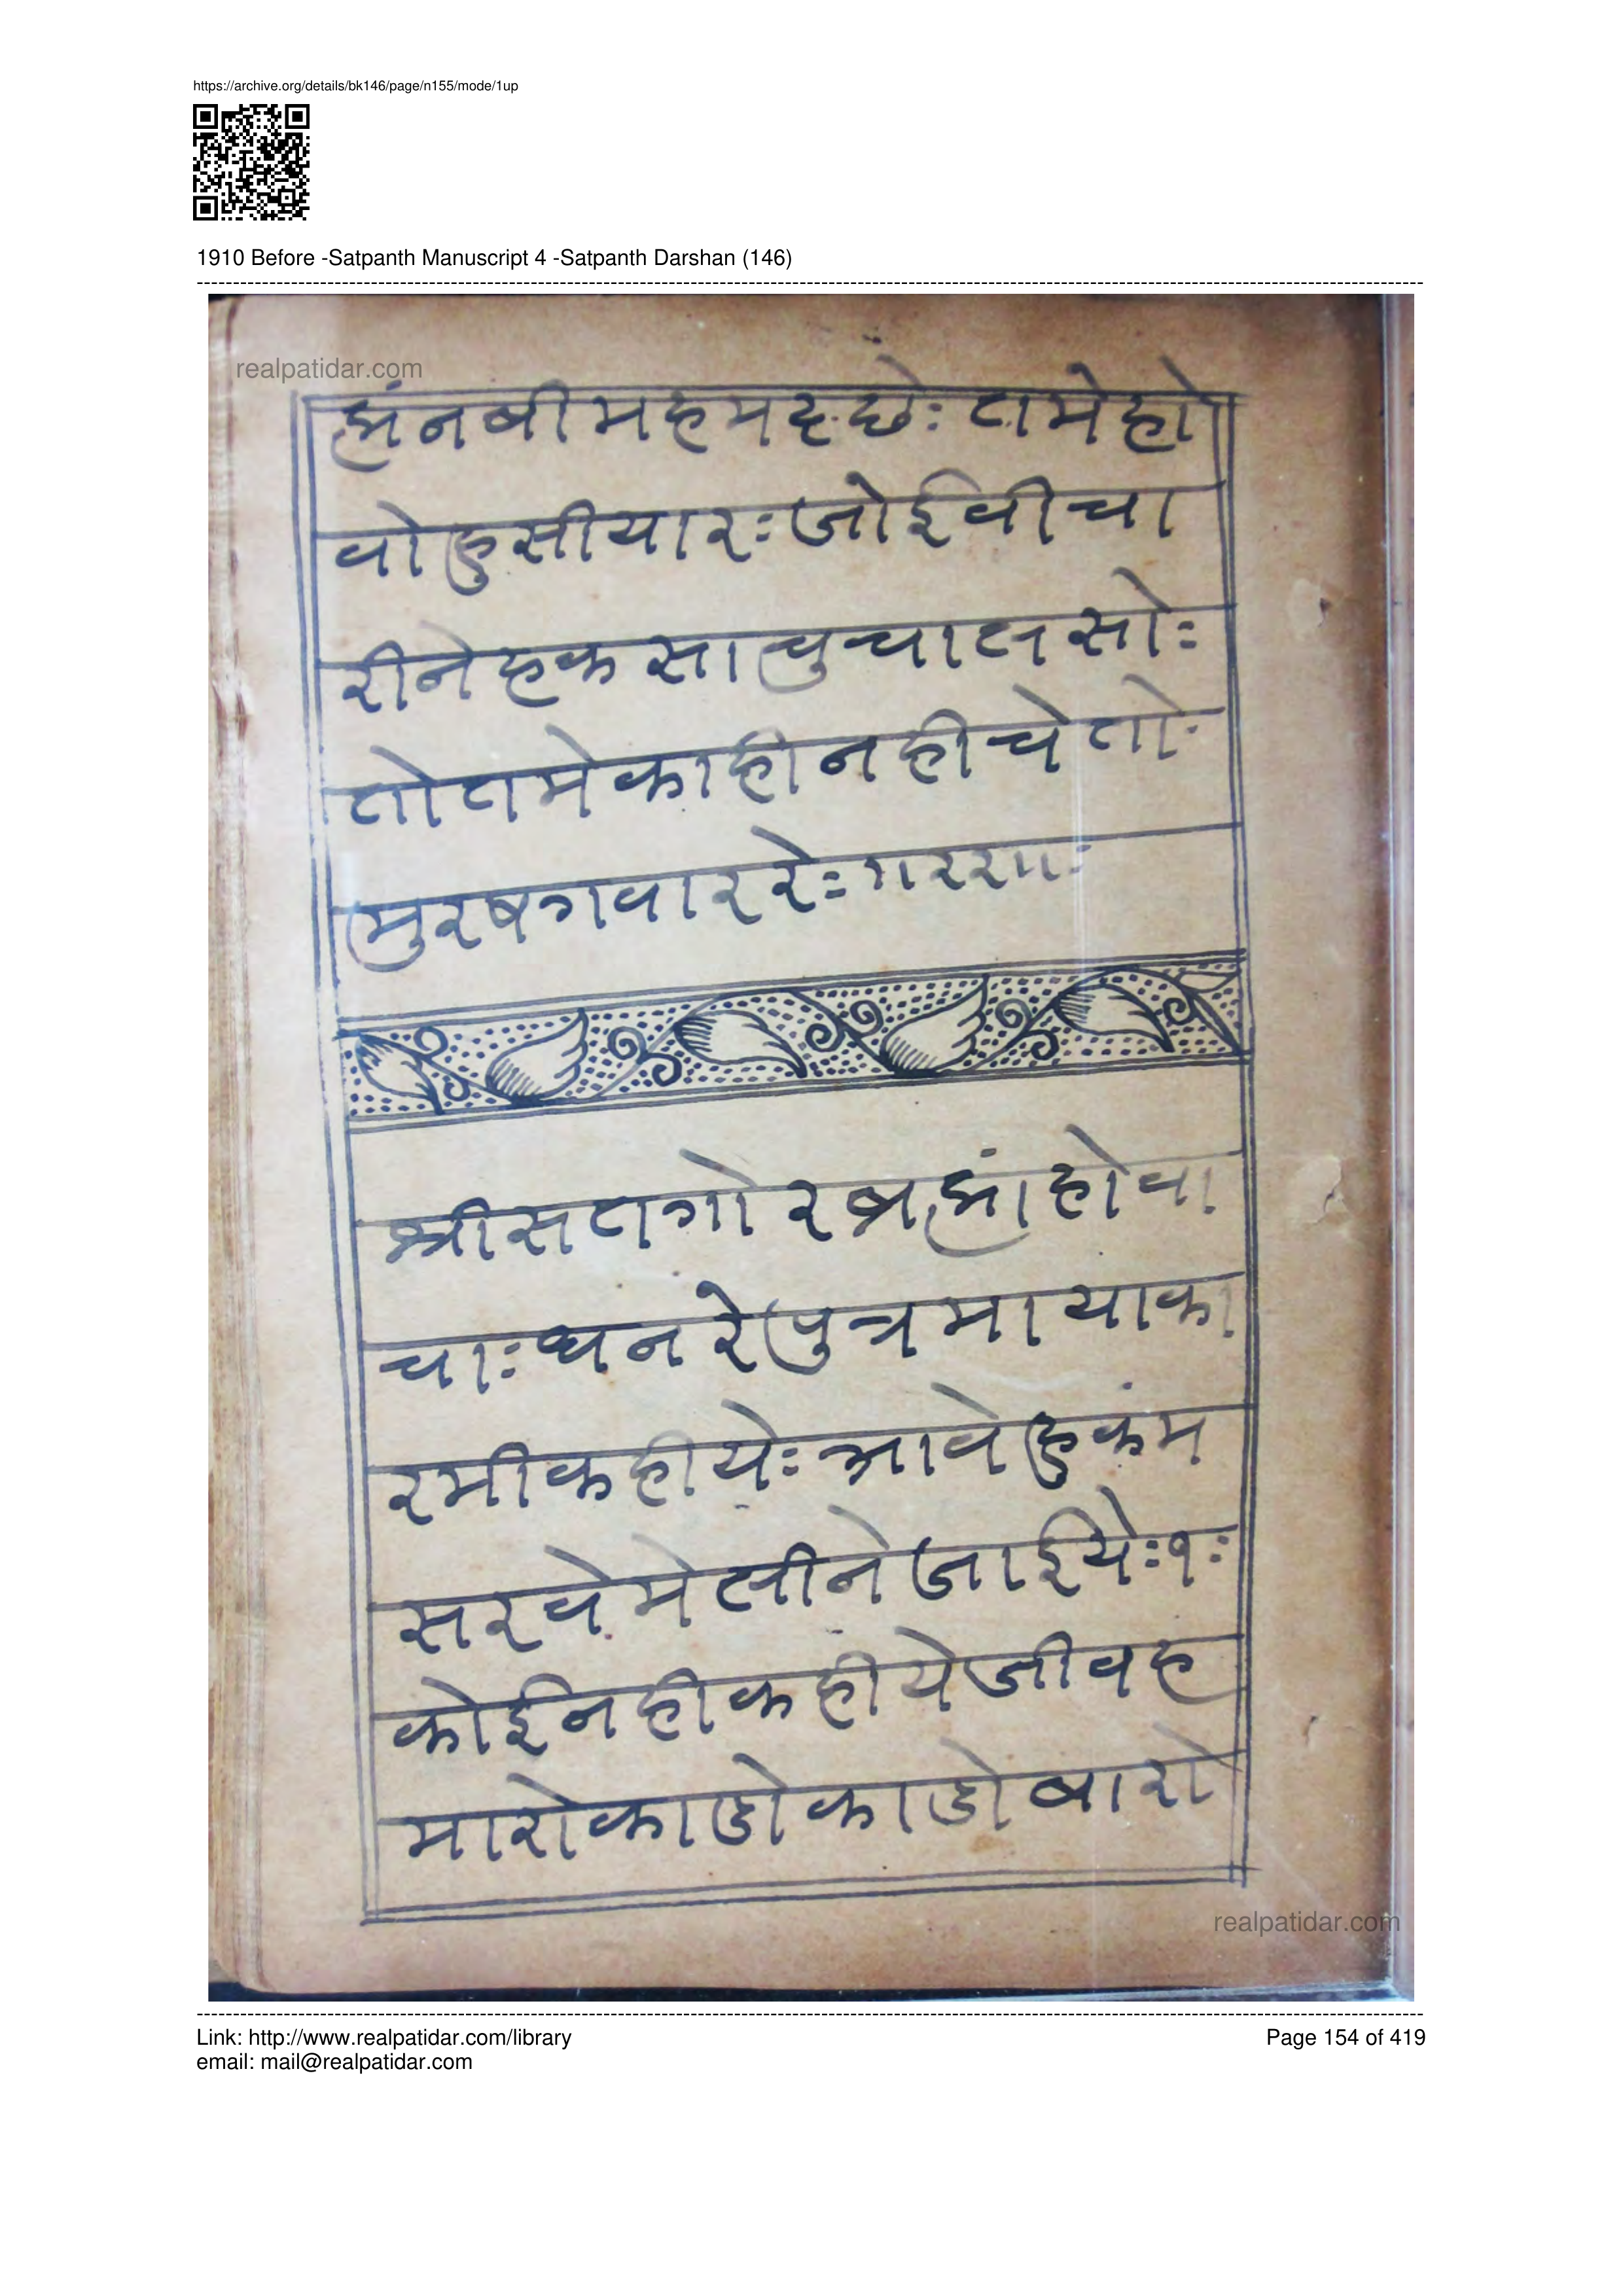 https://archive.org/details/bk146/page/n155/mode/1up
1910 Before -Satpanth Manuscript 4 -Satpanth Darshan (146)
realpatidar.com
ह्मंनबीमहमदछेः तमेहो
वोहुसीयारःजोईवीचा
रीनेहकसाचुचालसोः
तोतमेकाहीनहीचेतोः
मुरषगवाररेः
श्रीसतगोरब्रह्मांहोवा
चाःधनरेपुत्रमायाका
रमीकहीयेःआवेहुकंम
सरवेमेलीनेजाईयेः१ः
कोईनहीकहीयेजीवह
मारोकाढोकाढोबारो
realpatidar.com
Link: http://www.realpatidar.com/library
email: mail@realpatidar.com
Page 154 of 419